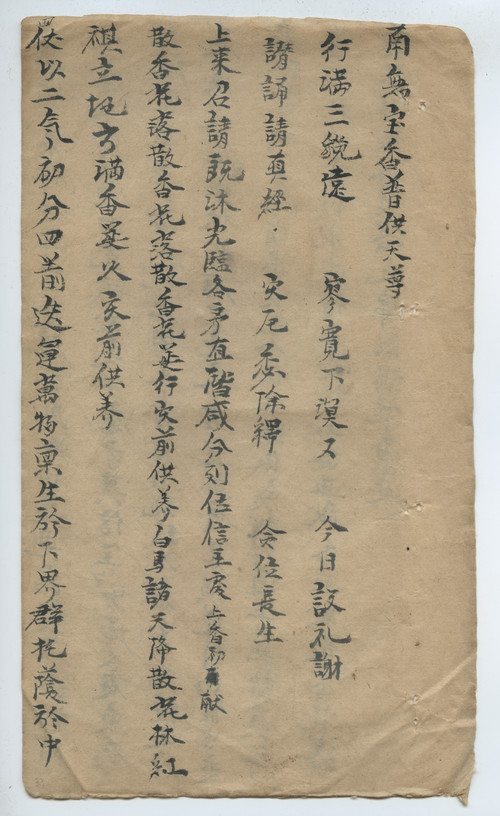 南無宝香普供天尊
行满三 遠 寥寛下 又 今日設礼謝
請誦請真經 灾厄悉除 合位長生
上来召請既沐光臨各序直階咸分列位信主虔 上香初献
散香花落散香花落散香花 行灾前供养白馬諸天降散花林紅
祺立坛方满香 以灾前供养
伏以二气初分四 迭運萬物禀生於下界群 托蔭於中